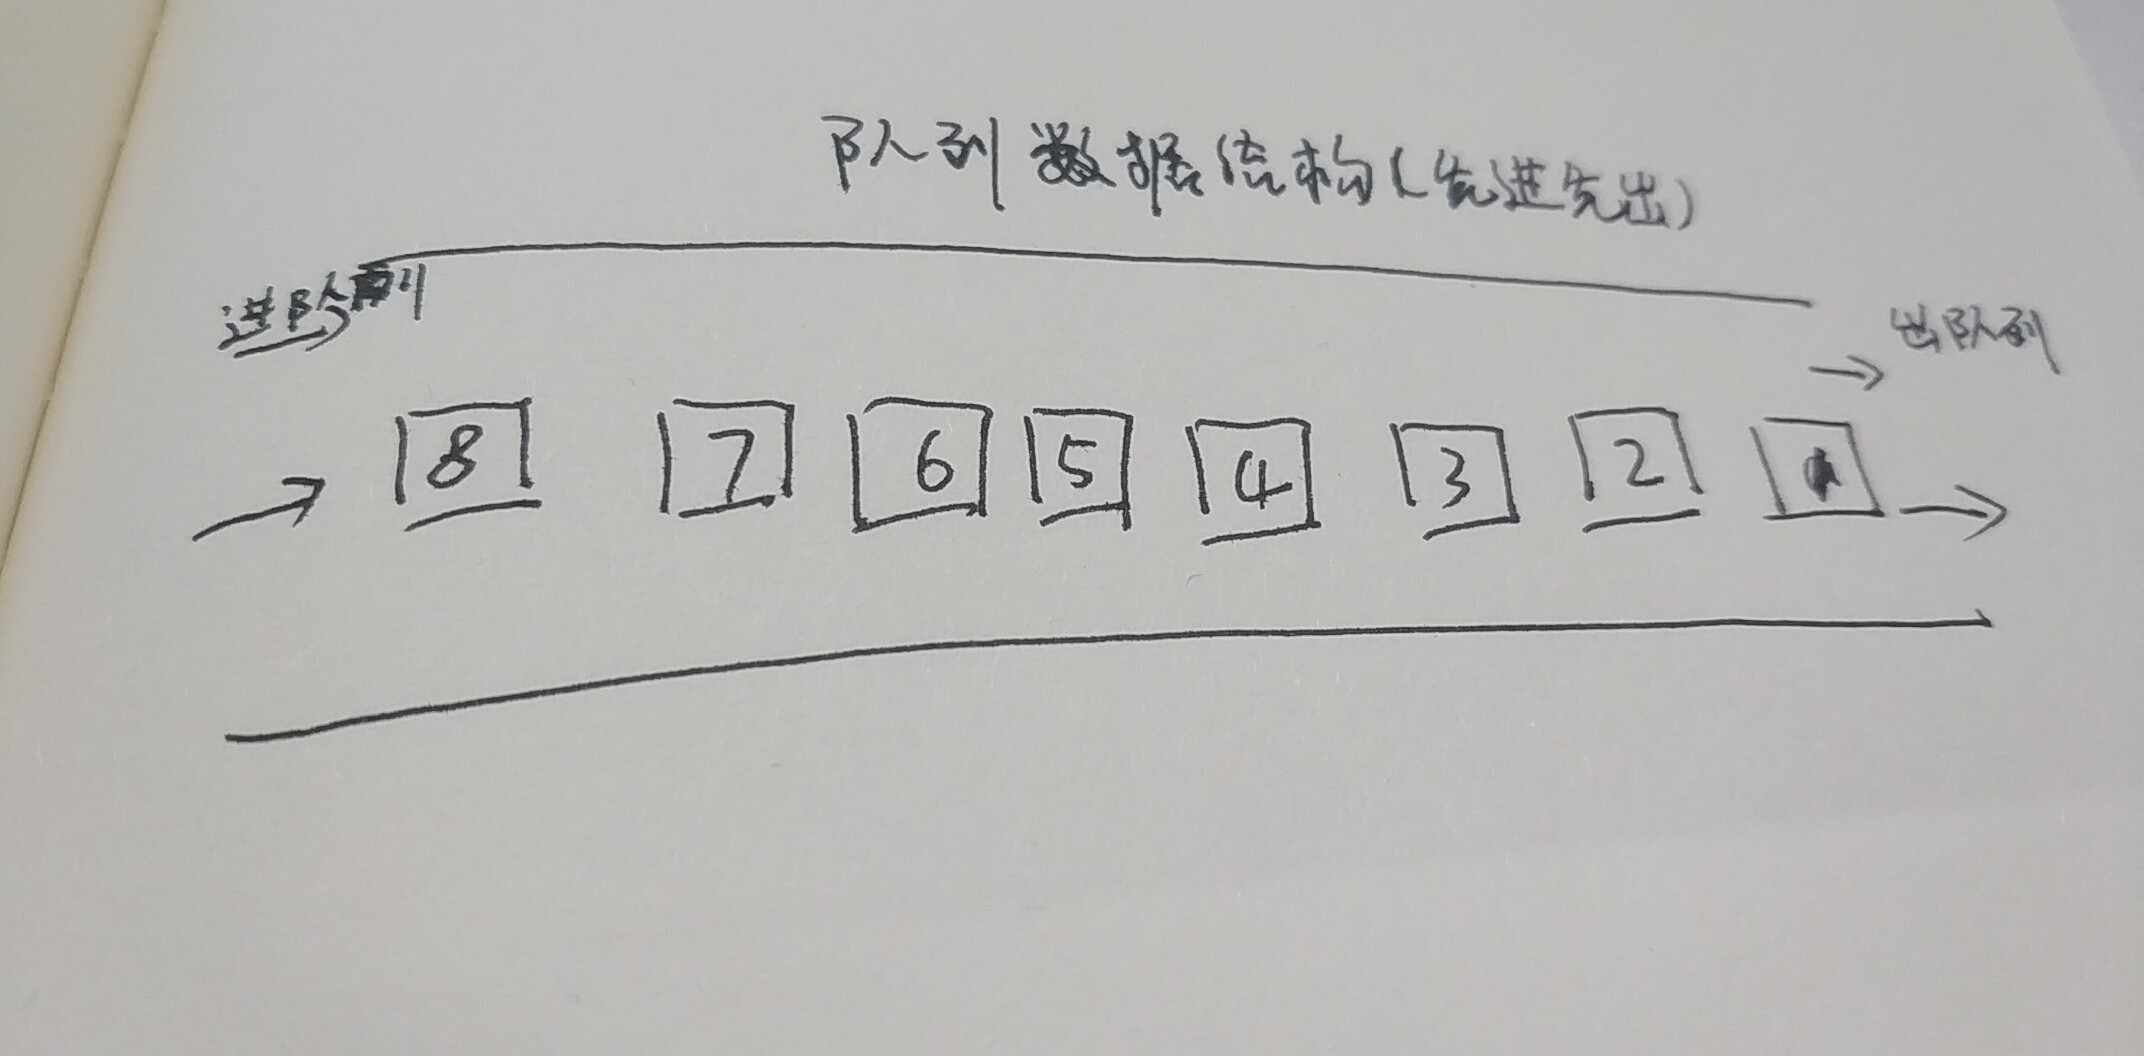 队列数据结构(先进先出)
进队列
出队列
8 7 6 5 4 3 2 1